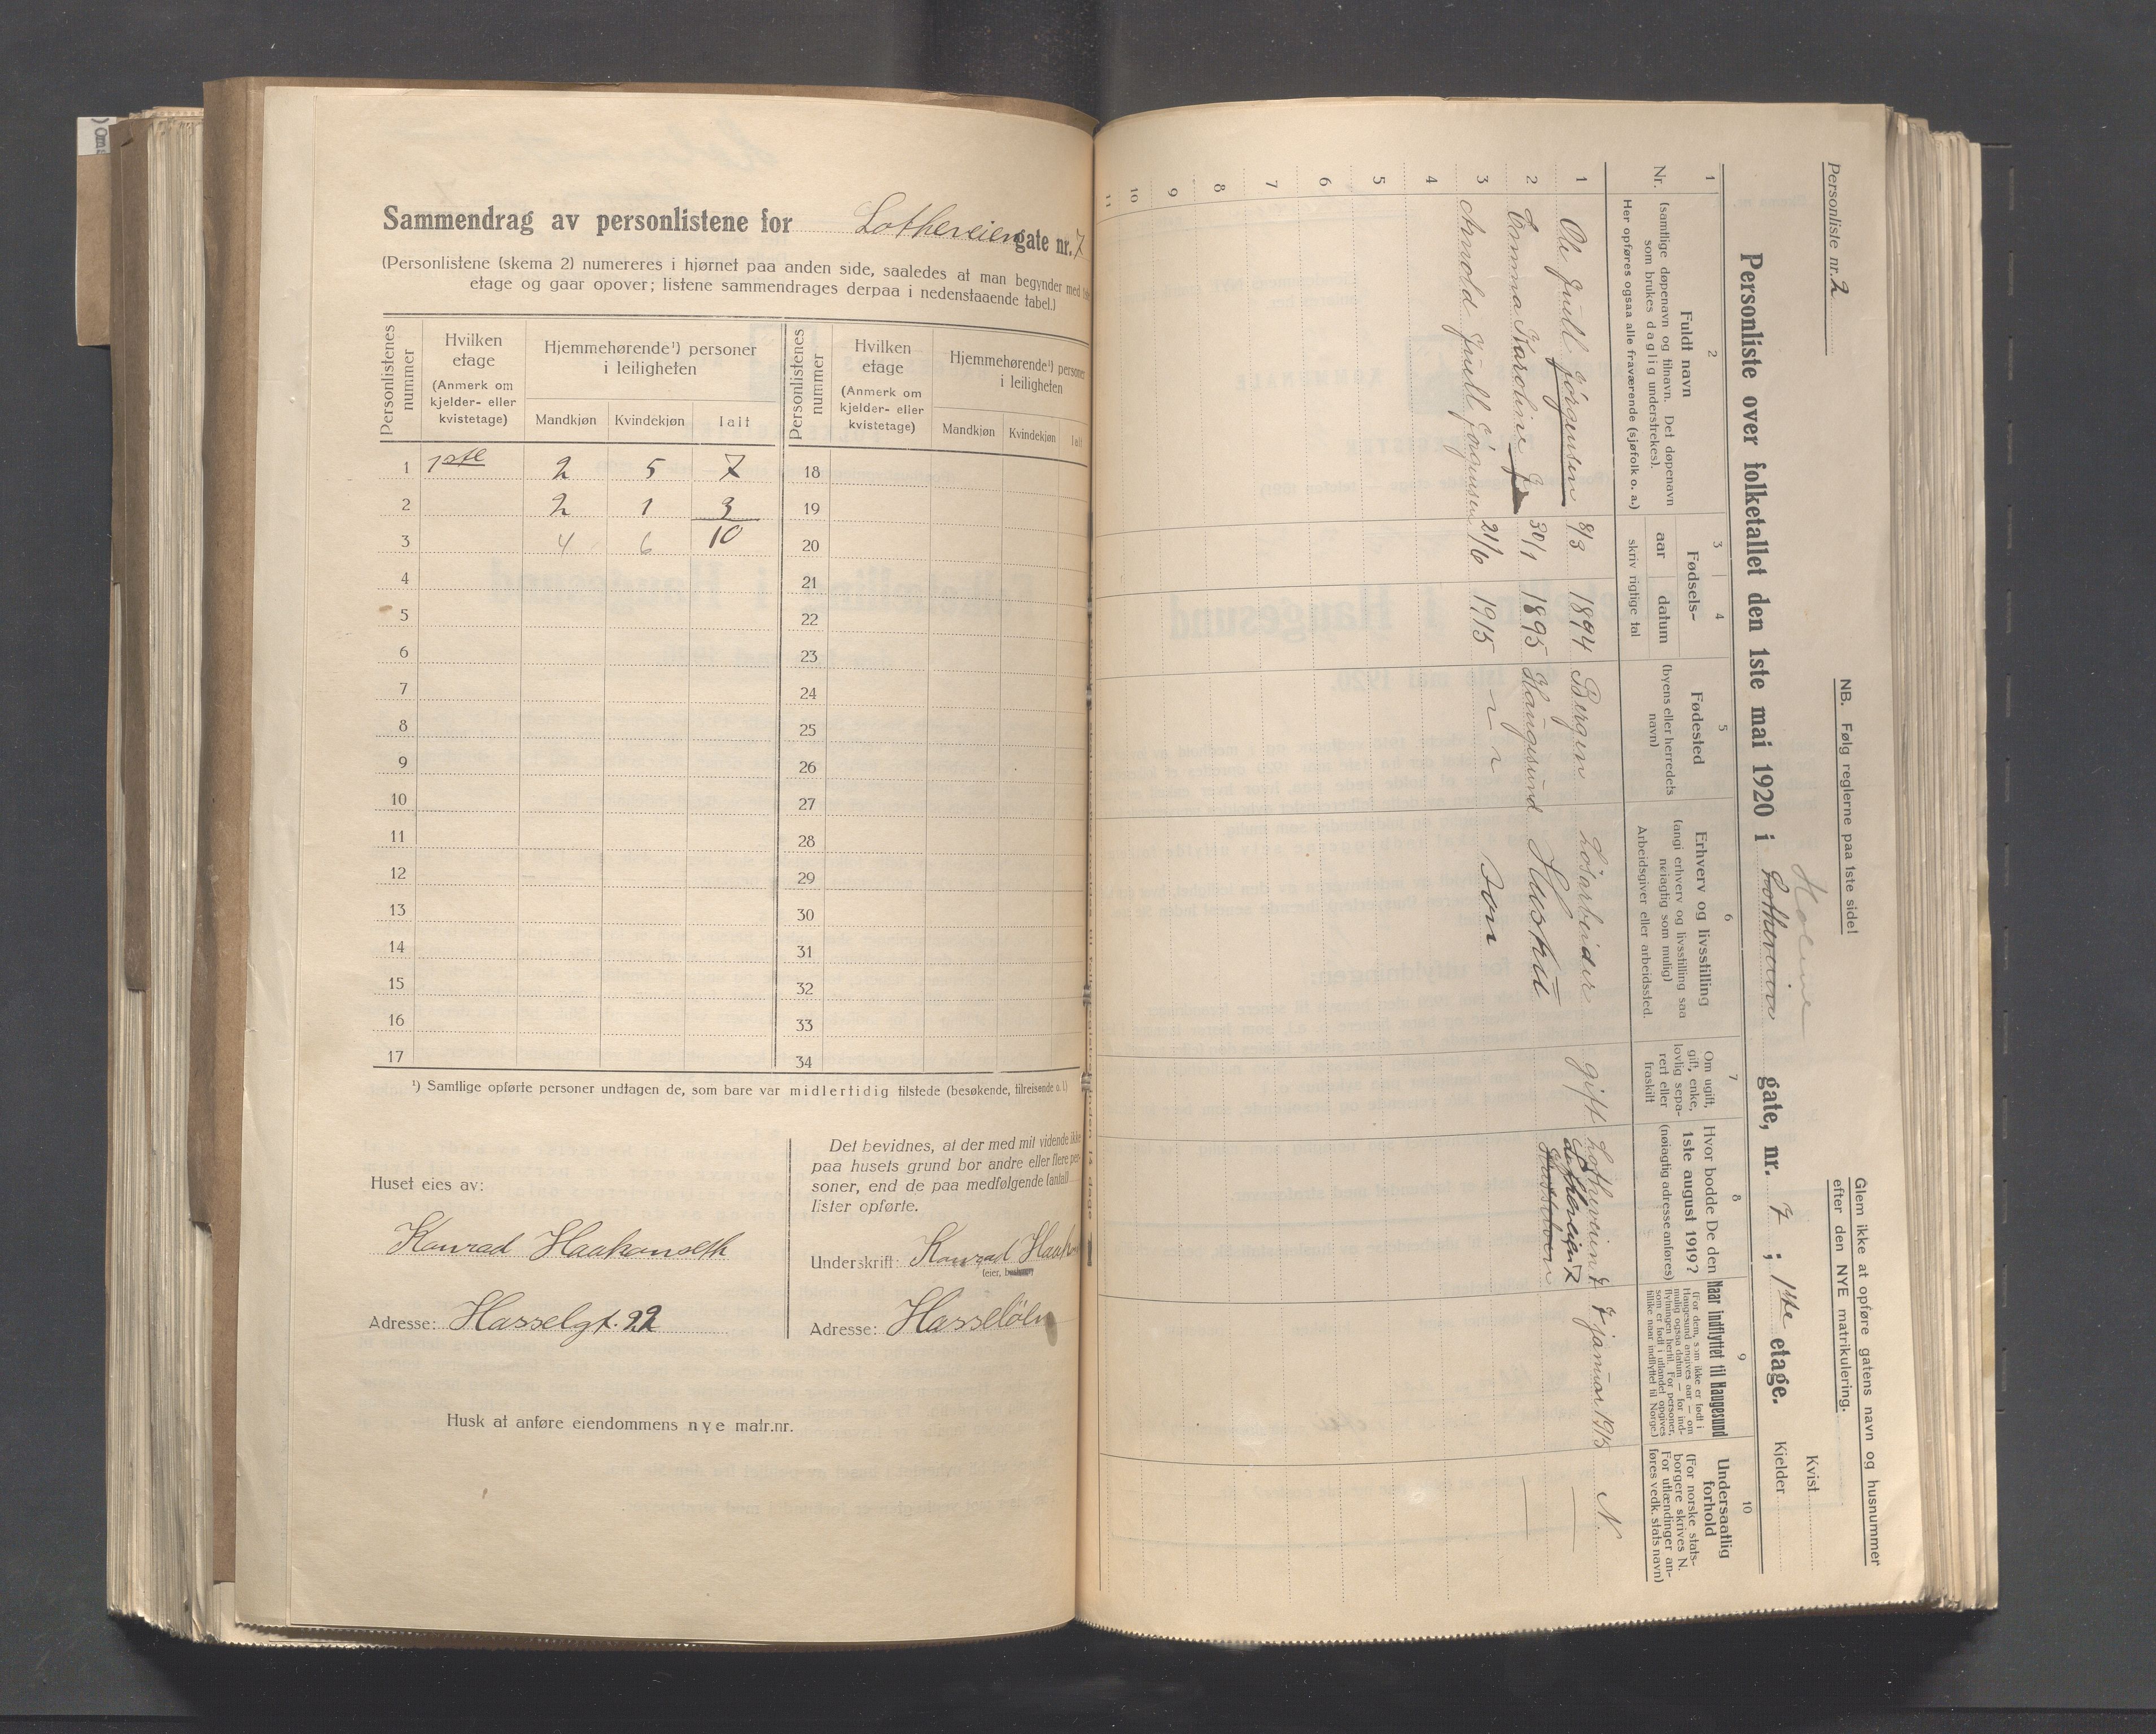 Sammendrag av personlistene for Lotheveien gate nr. 7
(Personlistene (skema 2) numereres i hjørnet paa anden side, saaledes at man begynder med
etage og gaar opover; listene sammendrages derpaa i nedenstaaende tabel.)
Personlistenes nummer
Hvilken etage
(Anmerk om kjelder- eller kvistetage)
Hjemmehørende¹) personer i leiligheten
Mandkjøn Kvindekjøn Ialt
Personlistenes nummer
Hvilken etage
(Anmerk om kjelder- eller kvistetage)
Hjemmehørende¹) personer i leiligheten
Mandkjøn Kvindekjøn Ialt
1 1ste 2 5 7 18
2 2 1 3 19
3 4 6 10 20
4 21
5 22
6 23
7 24
8 25
9 26
10 27
11 28
12 29
13 30
14 31
15 32
16 33
17 34
¹) Samtlige opførte personer undtagen de, som bare var midlertidig tilstede (besøkende, tilreisende o. l.)
Huset eies av:
Konrad Haakonseth
Adresse: Hasselgt. 22
Det bevidnes, at der med mit vidende ikke
paa husets grund bor andre eller flere per-
soner, end de paa medfølgende (antal)
lister opførte.
Underskrift: Konrad
(eier,
Adresse:
Husk at anføre eiendommens nye matr.nr.
Personliste nr. 2
NB. Følg reglerne paa 1ste side!
Glem ikke at opføre gatens navn og husnummer
efter den NYE matrikulering.
Kvist
Kjelder
Personliste over folketallet den 1ste mai 1920 i Lotheveien gate, nr. 7 ; 1ste etage.
1
Nr.
2
Fuldt navn
(samtlige døpenavn og tilnavn. Det døpenavn
som brukes daglig understrekes).
Her opføres ogsaa alle fraværende (sjøfolk o. a.)
3 4
Fødsels-
aar datum
skriv rigtige tal
5
Fødested
(byens eller herredets
navn)
6
Erhverv og livsstilling
(angi erhverv og livsstilling saa
nøiagtig som mulig)
Arbeidsgiver eller arbeidssted.
7
Om ugift,
gift, enke,
lovlig sepa-
rert eller
fraskilt
8
Hvor bodde De den
1ste august 1919?
(nøiagtig adresse anføres)
9
Naar indflyttet til Haugesund
(For dem, som ikke er født i
Haugesund angives aar — om
mulig ogsaa datum — for ind-
flytningen hertil. For personer,
som er født i utlandet opgives
tillike naar indflyttet til Norge.)
10
Undersaatlig
forhold
(For norske stats-
borgere skrives N.
For utlændinger an-
føres vedk. stats navn)
1 Ole Juell Jörgensen 8/3 1894 Bergen Lösarbeider gift Lotheveien 7 7 januar 1915 N.
2 Emma Karoline J. 30/1 1895 Haugesund Hustru Lotheveien 7 —
3 Arnold Juell Jörgensen 21/6 1915 — " — Sön
4
5
6
7
8
9
10
11